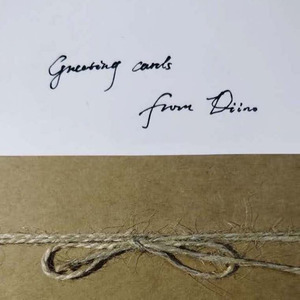 Greeting cards
from Diino